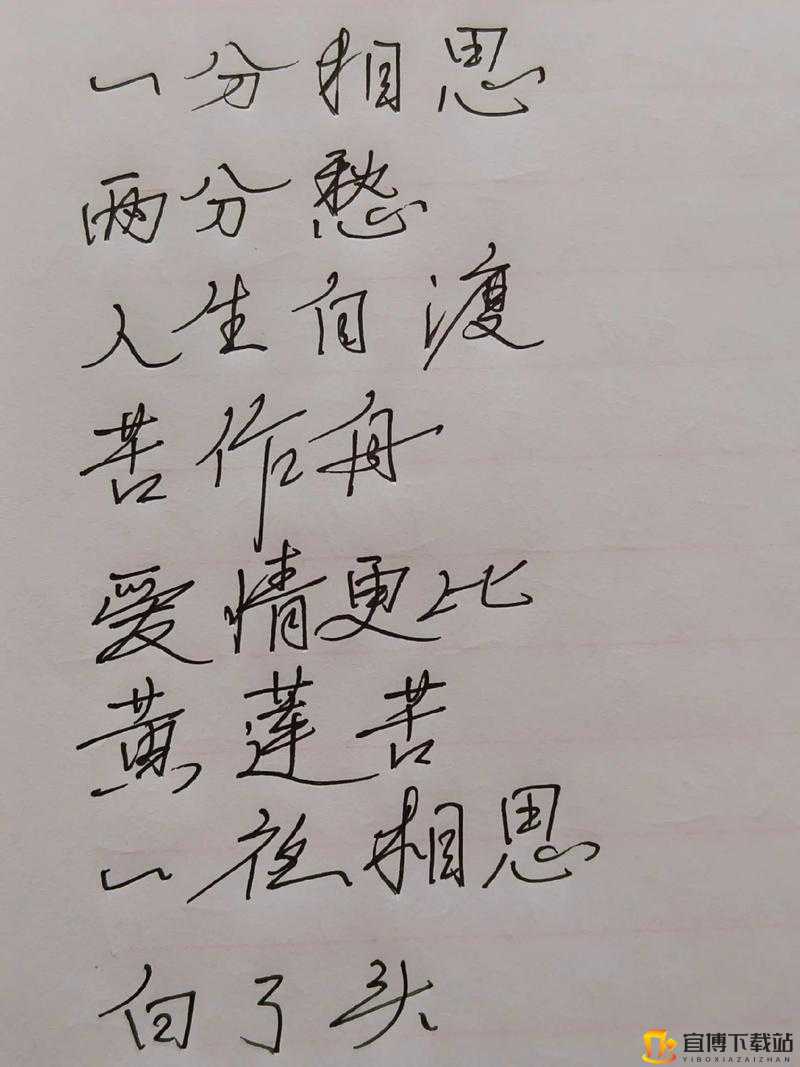 一分相思
两分愁
人生自渡
苦作舟
爱情更比
黄莲苦
一夜相思
白了头
宜博下载站
YIBOXIAZAIZHAN